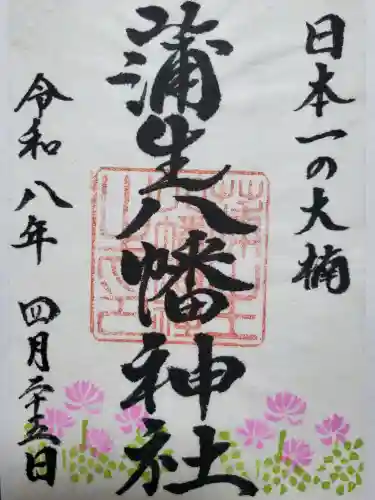 日本一の大楠
蒲生八幡神社
令和八年 四月二十五日